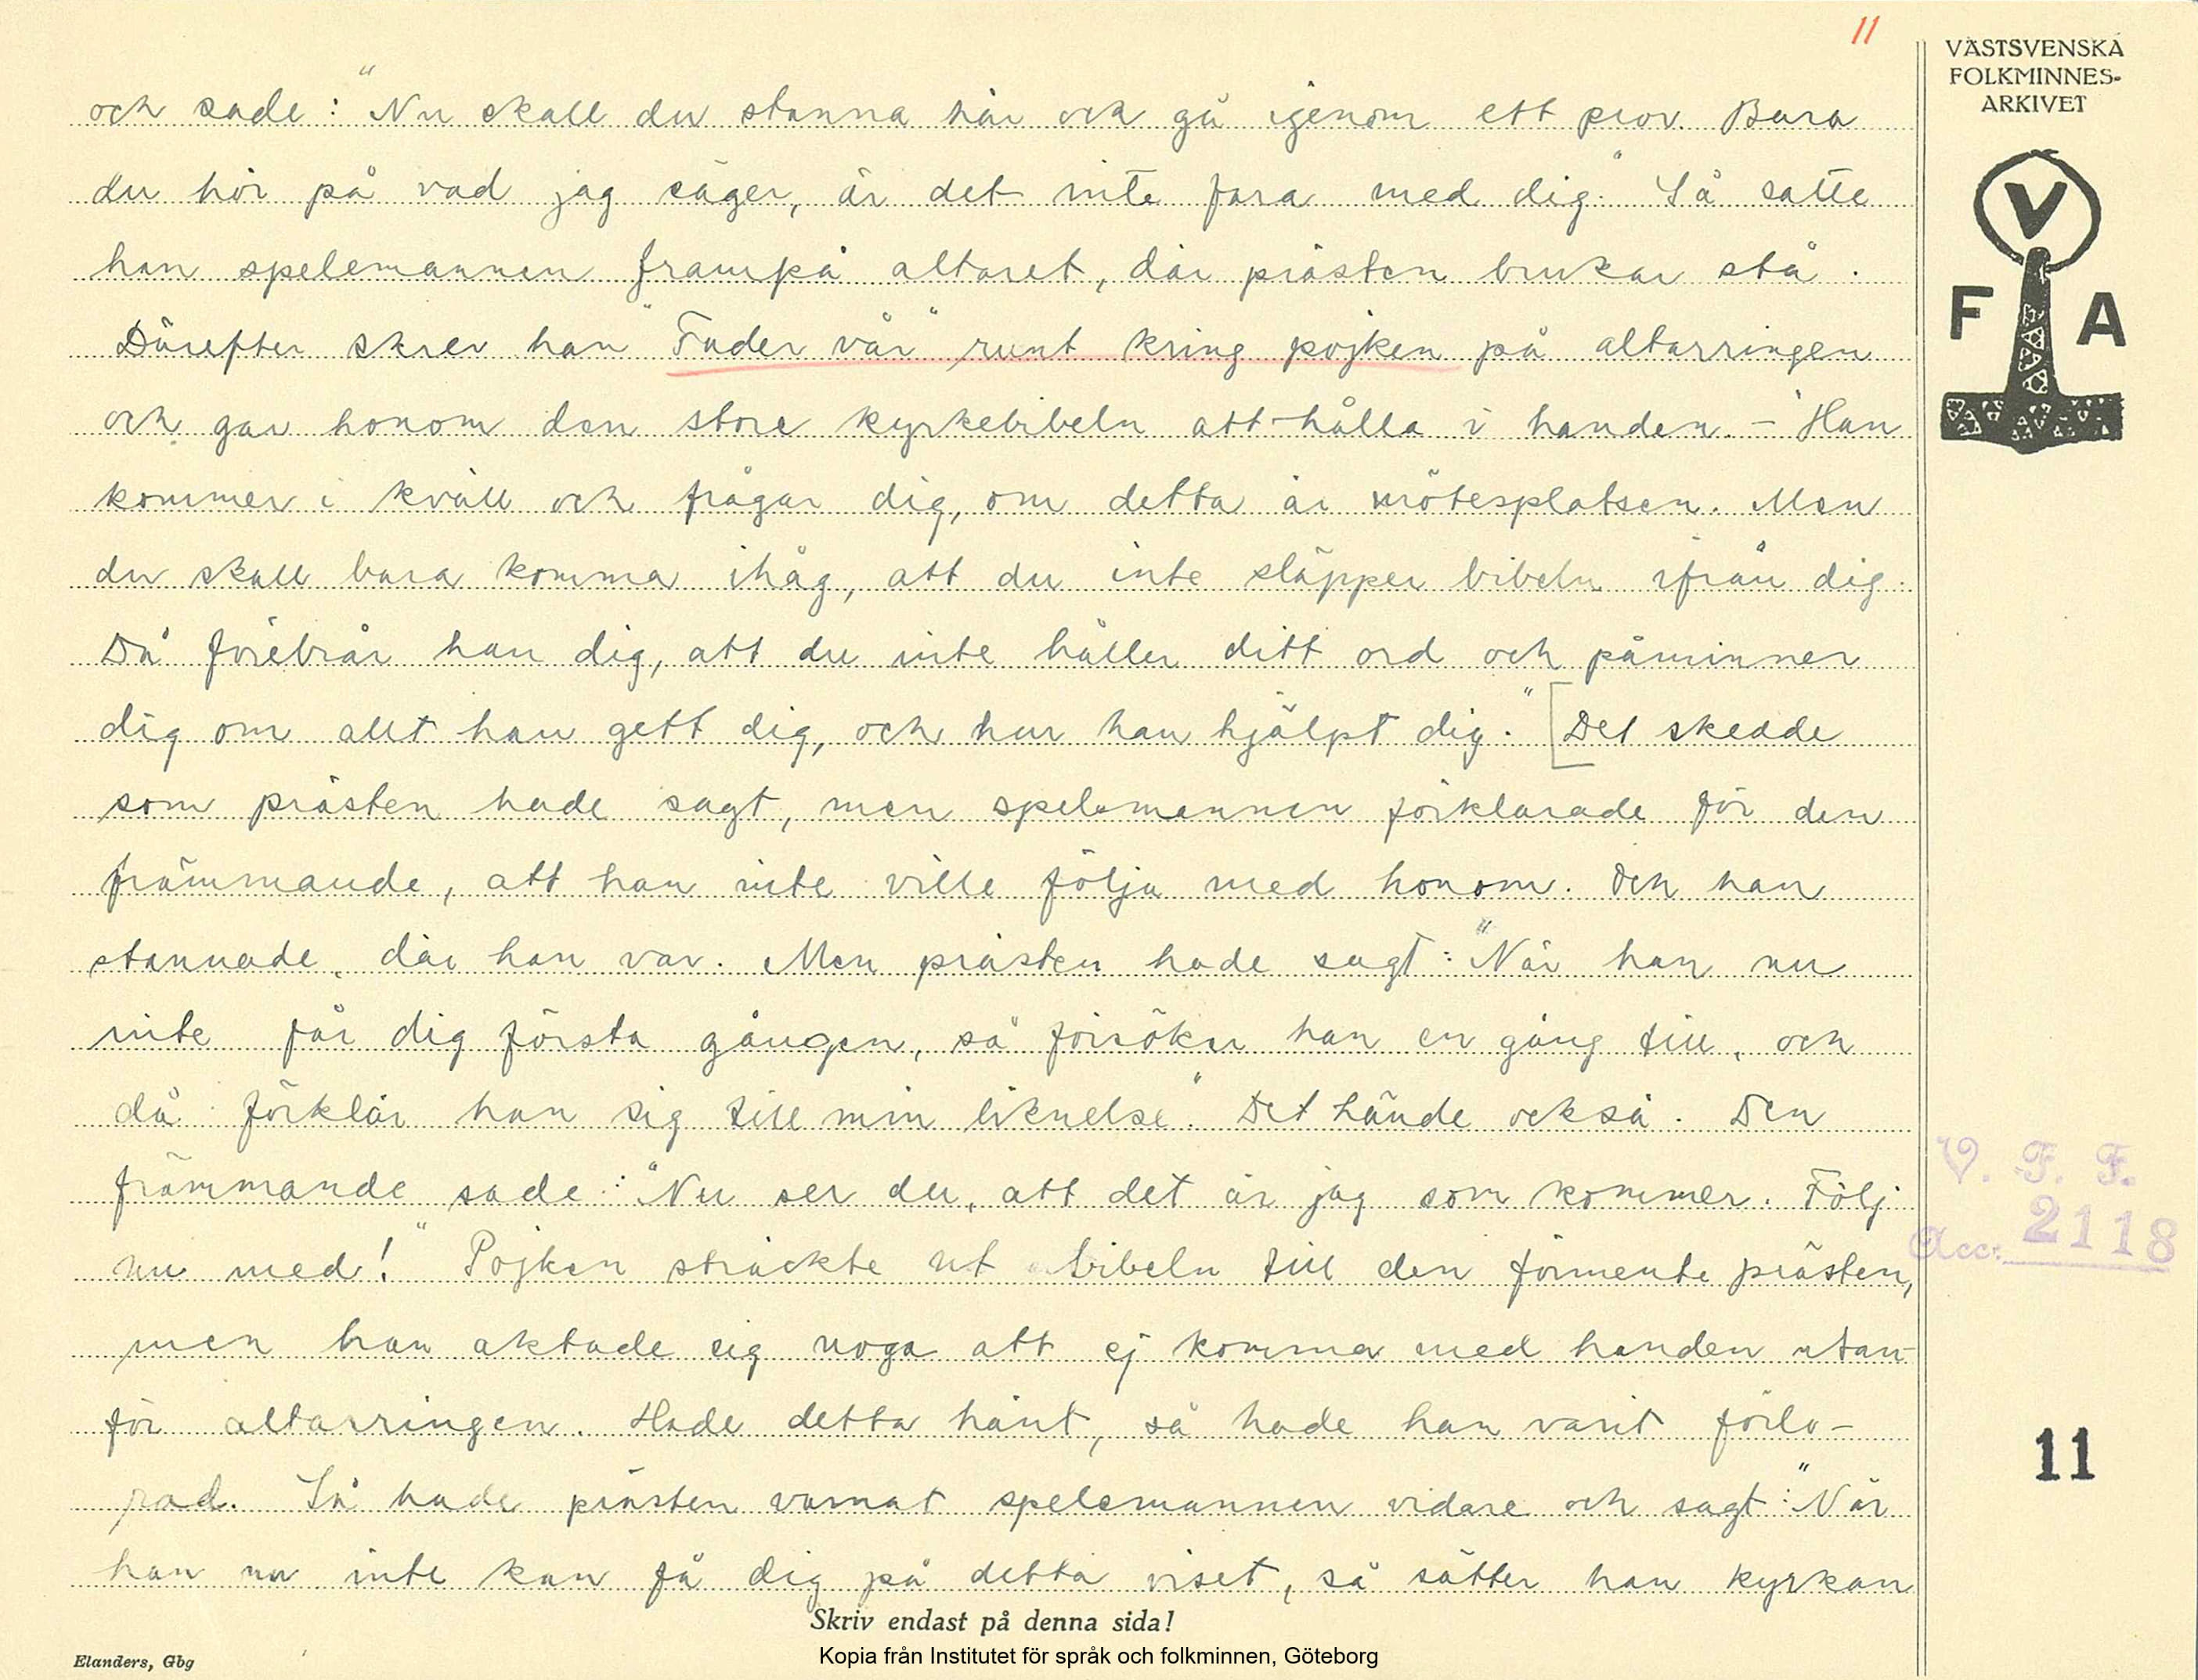 11
VÄSTSVENSKA
FOLKMINNES-
ARKIVET
V
F A
och sade: "Nu skall du stanna här och gå igenom ett prov. Bara
du hör på vad jag säger, är det inte fara med dig." Så satte
han spelemannen frampå altaret, där prästen brukar stå.
Därefter skrev han "Fader vår" runt kring pojken på altarringen
och gav honom den store kyrkebibeln att hålla i handen. - "Han
kommer i kväll och frågar dig, om detta är mötesplatsen. Men
du skall bara komma ihåg, att du inte släpper bibeln ifrån dig.
Då förebrår han dig, att du inte håller ditt ord och påminner
dig om allt han gett dig, och hur han hjälpt dig." [Det skedde
som prästen hade sagt, men spelemannen förklarade för den
främmande, att han inte ville följa med honom. Och han
stannade, där han var. Men prästen hade sagt: "När han nu
inte får dig första gången, så försöker han en gång till, och
då förklär han sig till min liknelse." Det hände också. Den
främmande sade: "Nu ser du, att det är jag som kommer. Följ
nu med!" Pojken sträckte ut bibeln till den förmente prästen,
men han aktade sig noga att ej komma med handen utan-
för altarringen. Hade detta hänt, så hade han varit förlo-
rad. Så hade prästen varnat spelemannen vidare och sagt: "När
han nu inte kan få dig på detta viset, så sätter han kyrkan
V. F. F.
Acc. 2118
11
Skriv endast på denna sida!
Elanders, Gbg
Kopia från Institutet för språk och folkminnen, Göteborg